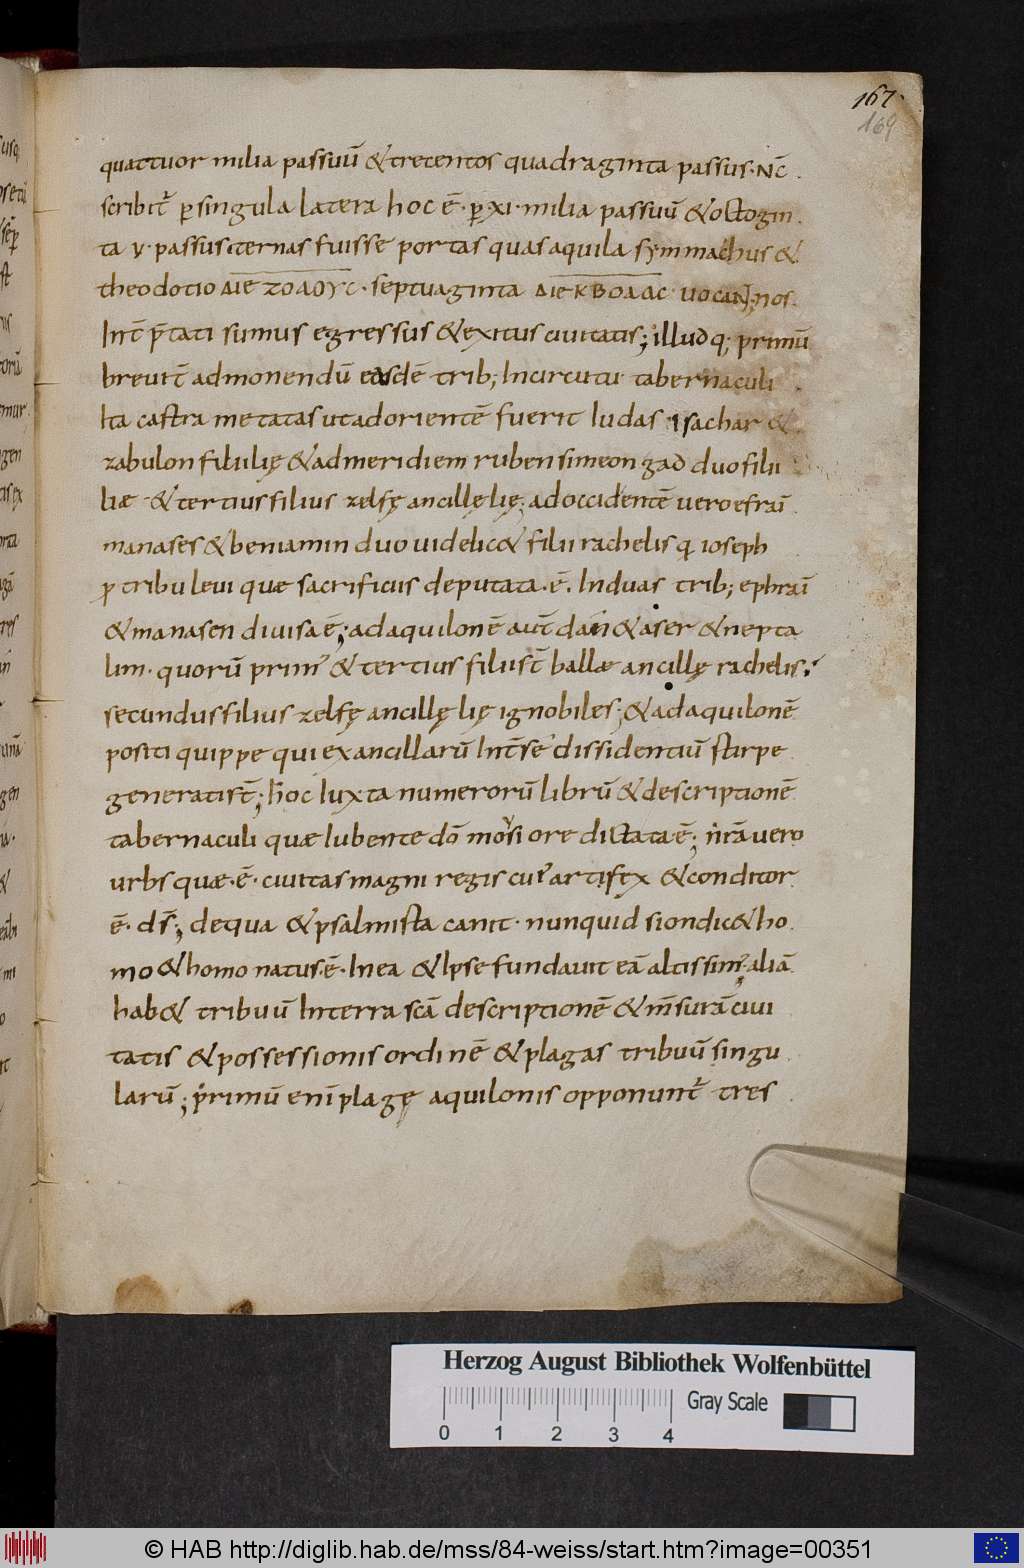 167
169
quattuor milia passuū & trecentos quadraginta passus. Nc̄
scribit̄ p singula latera hoc ē. p xi. milia passuū & octogin
ta v. passus. ternas fuisse portas quas aquila symmachus &
theodotio ΔΙΕΖΟΔΟΥC. septuaginta ΔΙΕΚΒΟΛΑC uocaN̄t; nos
int̄ p̄tati sumus egressus & exitus ciuitatis; illud q; primū
breuit̄ admonendū easdē trib; In circuitu tabernaculi
Ita castra metatas ut ad orientē fuerit Iudas isachar &
zabulon filii lię & ad meridiem ruben simeon gad duo filii
liæ & tertius filius zelfę ancillę lię; ad occidentē uero efraī
manases & beniamin duo uidelic& filii rachelis q ioseph
p tribu leui quæ sacrificiis deputata. ē. In duas trib; ephraī
& manasen diuisa ē; ad aquilonē aut̄ dan & aser & nepta
lim. quorū prim' & tertius filii st̄ ballæ ancillę rachelis.
secundus filius zelfę ancillę lię ignobiles; & ad aquilonē
positi quippe qui ex ancillarū Int̄ se dissidentiū stirpe
generati st̄; hoc Iuxta numerorū librū & descriptionē
tabernaculi quæ Iubente dō moysi ore dictata ē; nrā uero
urbs quæ. ē. ciuitas magni regis cui' artifex & conditor
ē. ds̄; de qua & psalmista canit. nunquid sion dic& ho
mo & homo natus. ē. In ea & Ipse fundauit eā altissim'; aliā
hab& tribuū In terra scā descriptionē & m̄surā ciui
tatis & possessionis ordinē & plagas tribuū singu
larū; primū enī plagę aquilonis opponunt̄ tres
Herzog August Bibliothek Wolfenbüttel
Gray Scale
0 1 2 3 4
© HAB http://diglib.hab.de/mss/84-weiss/start.htm?image=00351